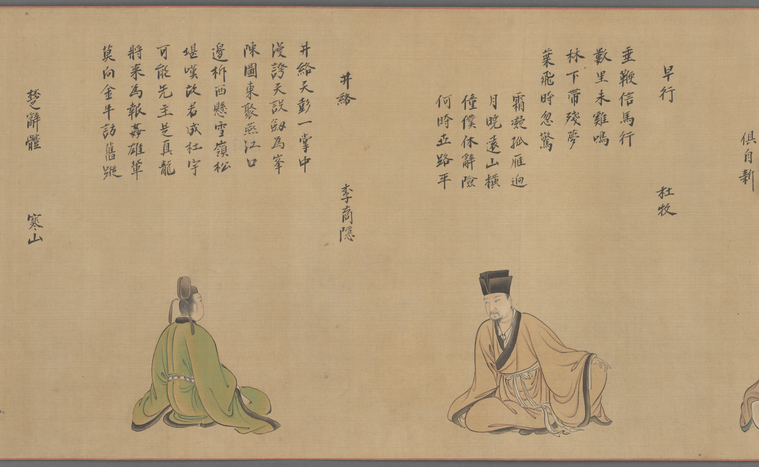 俱自新
早行 杜牧
垂鞭信馬行
數里未雞鳴
林下帶殘夢
葉飛時忽驚
霜凝孤雁迥
月曉遠山橫
僮僕休辭險
何時世路平
井絡 李商隱
井絡天彭一掌中
漫誇天設劔為峯
陳圖東聚燕江口
邊柝西懸雪嶺松
堪嘆故君成杜宇
可能先主是真龍
將來為報姦雄輩
莫向金牛訪舊蹤
楚辭體 寒山